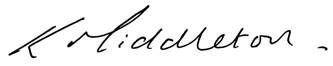 K Middleton.